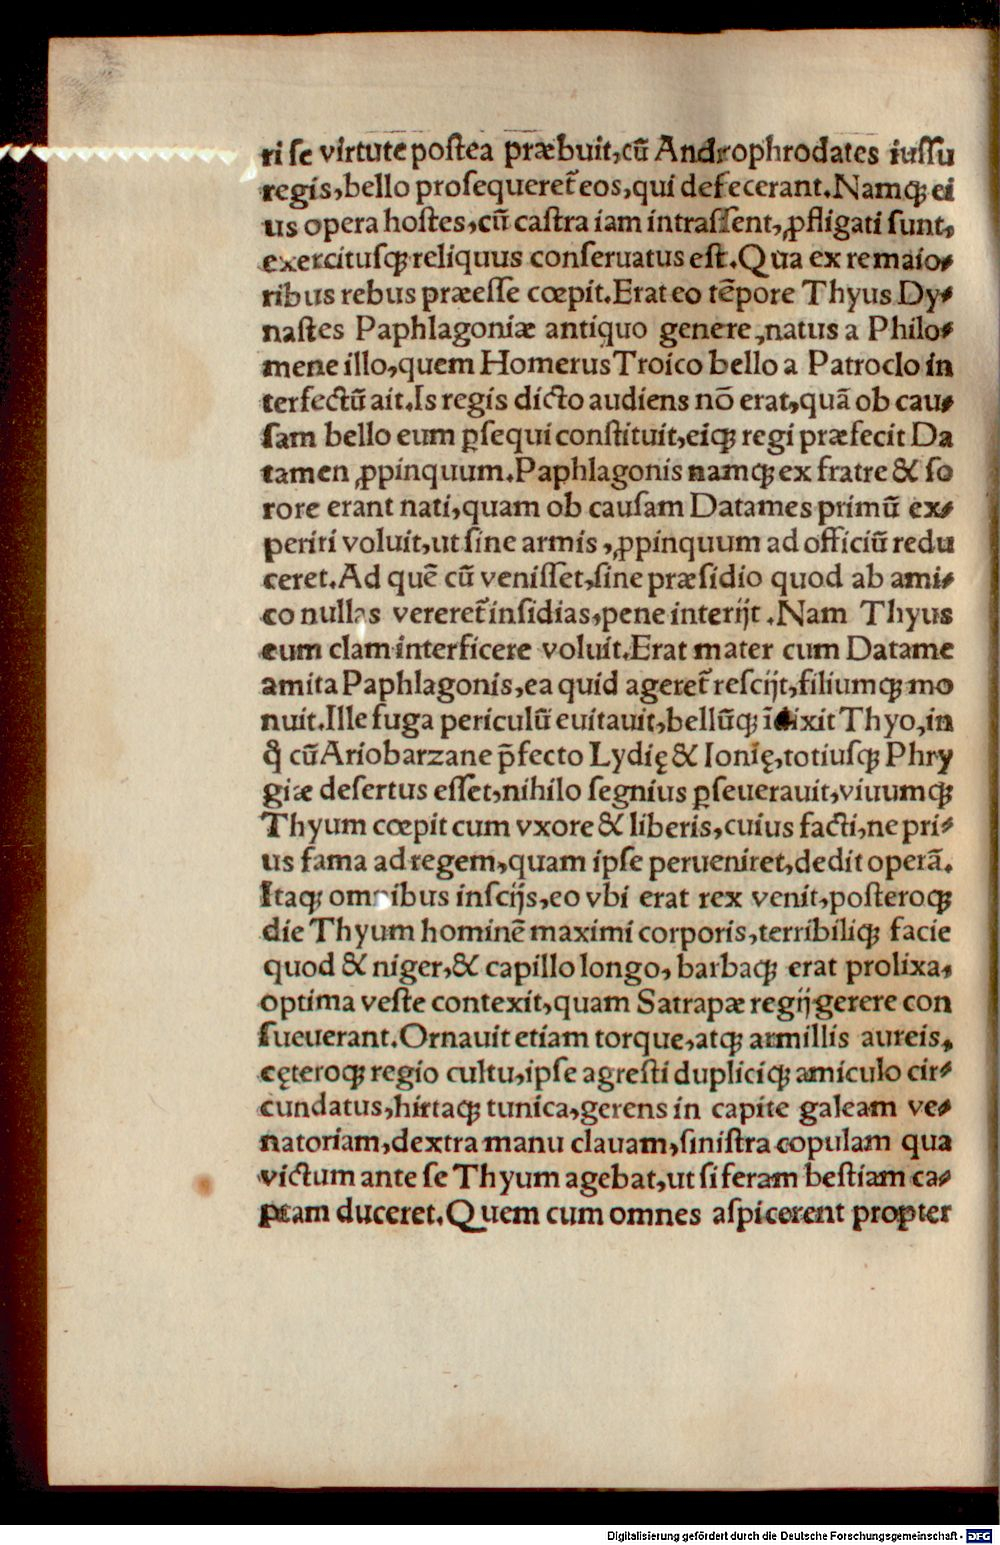 ri se virtute postea præbuit, cū Androphrodates iussu
regis, bello prosequeret᷑ eos, qui defecerant. Namqꝫ ei
us opera hostes, cū castra iam intrassent, ꝓfligati sunt,
exercitusqꝫ reliquus conseruatus est. Qua ex re maio⸗
ribus rebus præesse cœpit. Erat eo tēpore Thyus Dy⸗
nastes Paphlagoniæ antiquo genere, natus a Philo⸗
mene illo, quem Homerus Troico bello a Patroclo in
terfectū ait. Is regis dicto audiens nō erat, quā ob cau⸗
sam bello eum ꝑsequi constituit, eiqꝫ regi præfecit Da
tamen ꝓpinquum. Paphlagonis namqꝫ ex fratre & so
rore erant nati, quam ob causam Datames primū ex⸗
periri voluit, ut sine armis, ꝓpinquum ad officiū redu
ceret. Ad quē cū venisset, sine præsidio quod ab ami⸗
co nullas vereret᷑ insidias, pene interijt. Nam Thyus
eum clam interficere voluit. Erat mater cum Datame
amita Paphlagonis, ea quid ageret᷑ rescijt, filiumqꝫ mo
nuit. Ille fuga periculū euitauit, bellūqꝫ īdixit Thyo, in
qͦ cū Ariobarzane p̄fecto Lydię & Ionię, totiusqꝫ Phry
giæ desertus esset, nihilo segnius ꝑseuerauit, viuumqꝫ
Thyum cœpit cum vxore & liberis, cuius facti, ne pri⸗
us fama ad regem, quam ipse perueniret, dedit operā.
Itaqꝫ omnibus inscijs, eo vbi erat rex venit, posteroqꝫ
die Thyum hominē maximi corporis, terribiliqꝫ facie
quod & niger, & capillo longo, barbaqꝫ erat prolixa,
optima veste contexit, quam Satrapæ regij gerere con
sueuerant. Ornauit etiam torque, atqꝫ armillis aureis,
cęteroqꝫ regio cultu, ipse agresti dupliciqꝫ amiculo cir⸗
cundatus, hirtaqꝫ tunica, gerens in capite galeam ve⸗
natoriam, dextra manu clauam, sinistra copulam qua
victum ante se Thyum agebat, ut si feram bestiam ca⸗
ptam duceret. Quem cum omnes aspicerent propter
Digitalisierung gefördert durch die Deutsche Forschungsgemeinschaft - DFG